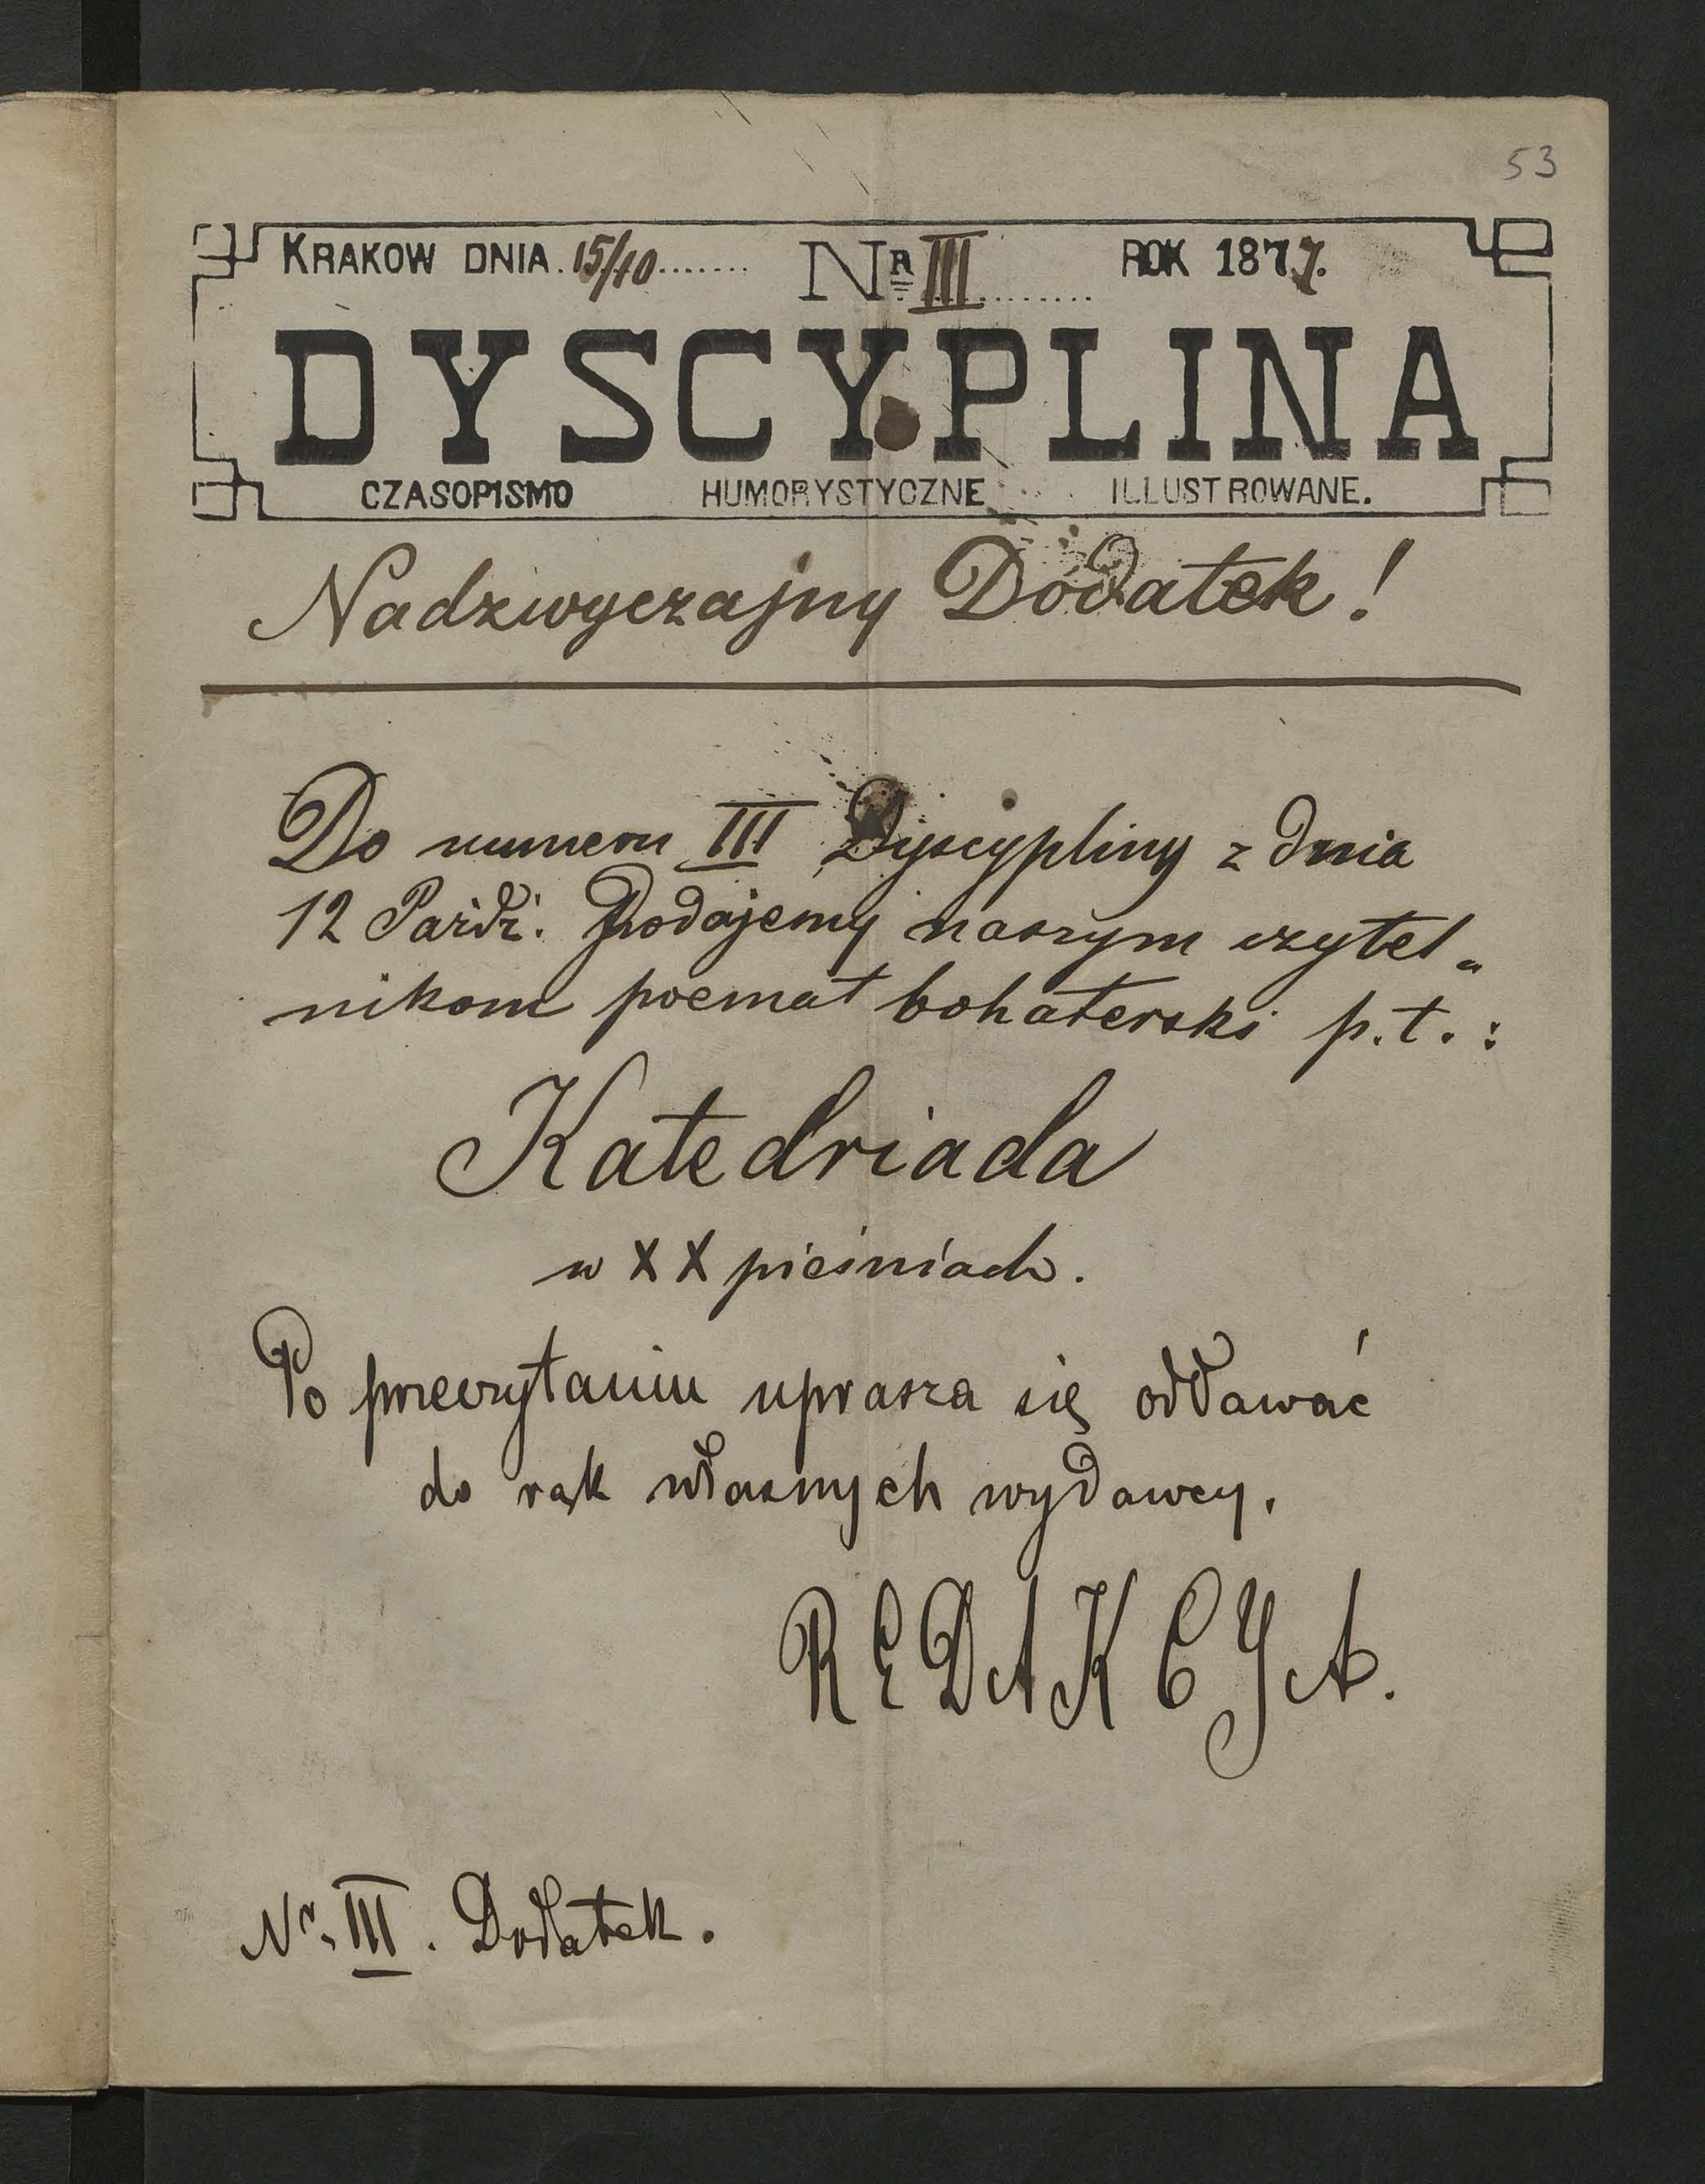 53
KRAKOW DNIA. 15/10........ NR III........ ROK 1877.
DYSCYPLINA
CZASOPISMO HUMORYSTYCZNE ILLUSTROWANE.
Nadzwyczajny Dodatek!
Do numeru III Dyscypliny z dnia
12 Paźdź. Dodajemy naszym czytel„
nikom poemat bohaterski p.t.:
Katedriada
w XX pieśniach.
Po przeczytaniu uprasza się oddawać
do rąk własnych wydawcy.
REDAKCYA.
Nr. III. Dodatek.